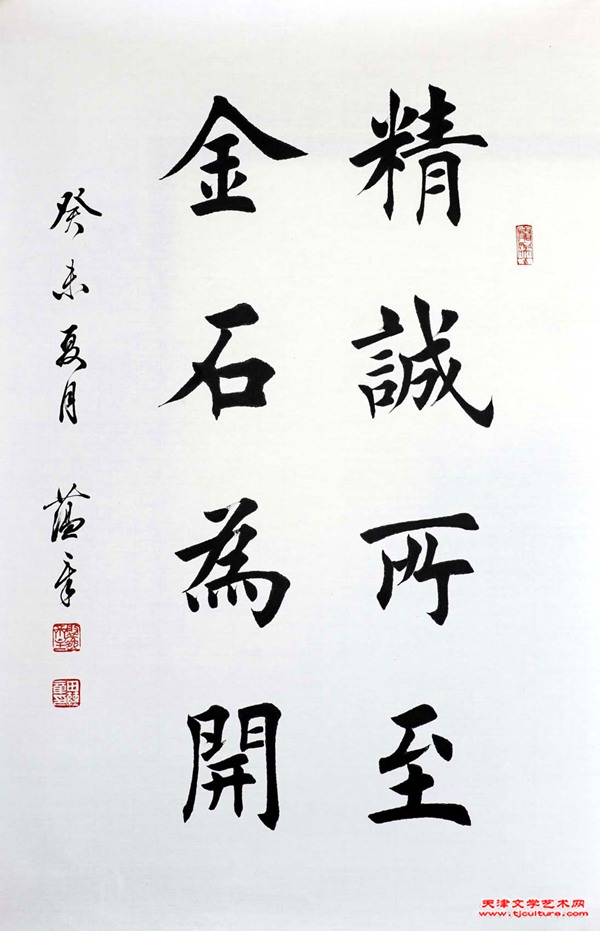 精誠所至
金石為開
癸未夏月 蕴章
天津文学艺术网
www.tjculture.com